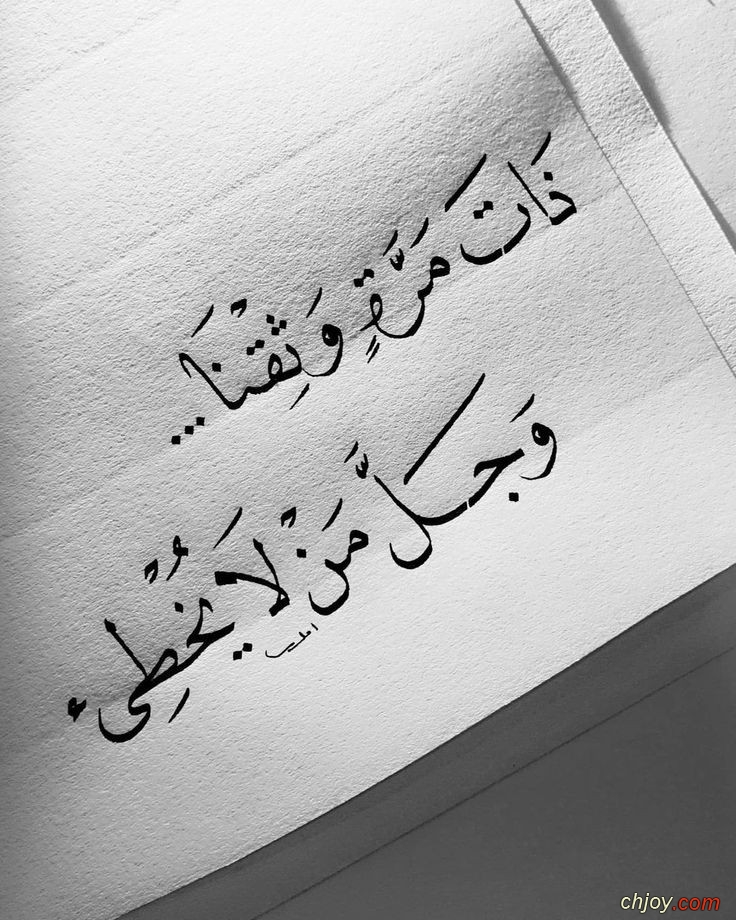 ذَاتَ مَرَّةٍ وَثِقْنَا...
وَجَلَّ مَنْ لَا يُخْطِئ
chjoy.com